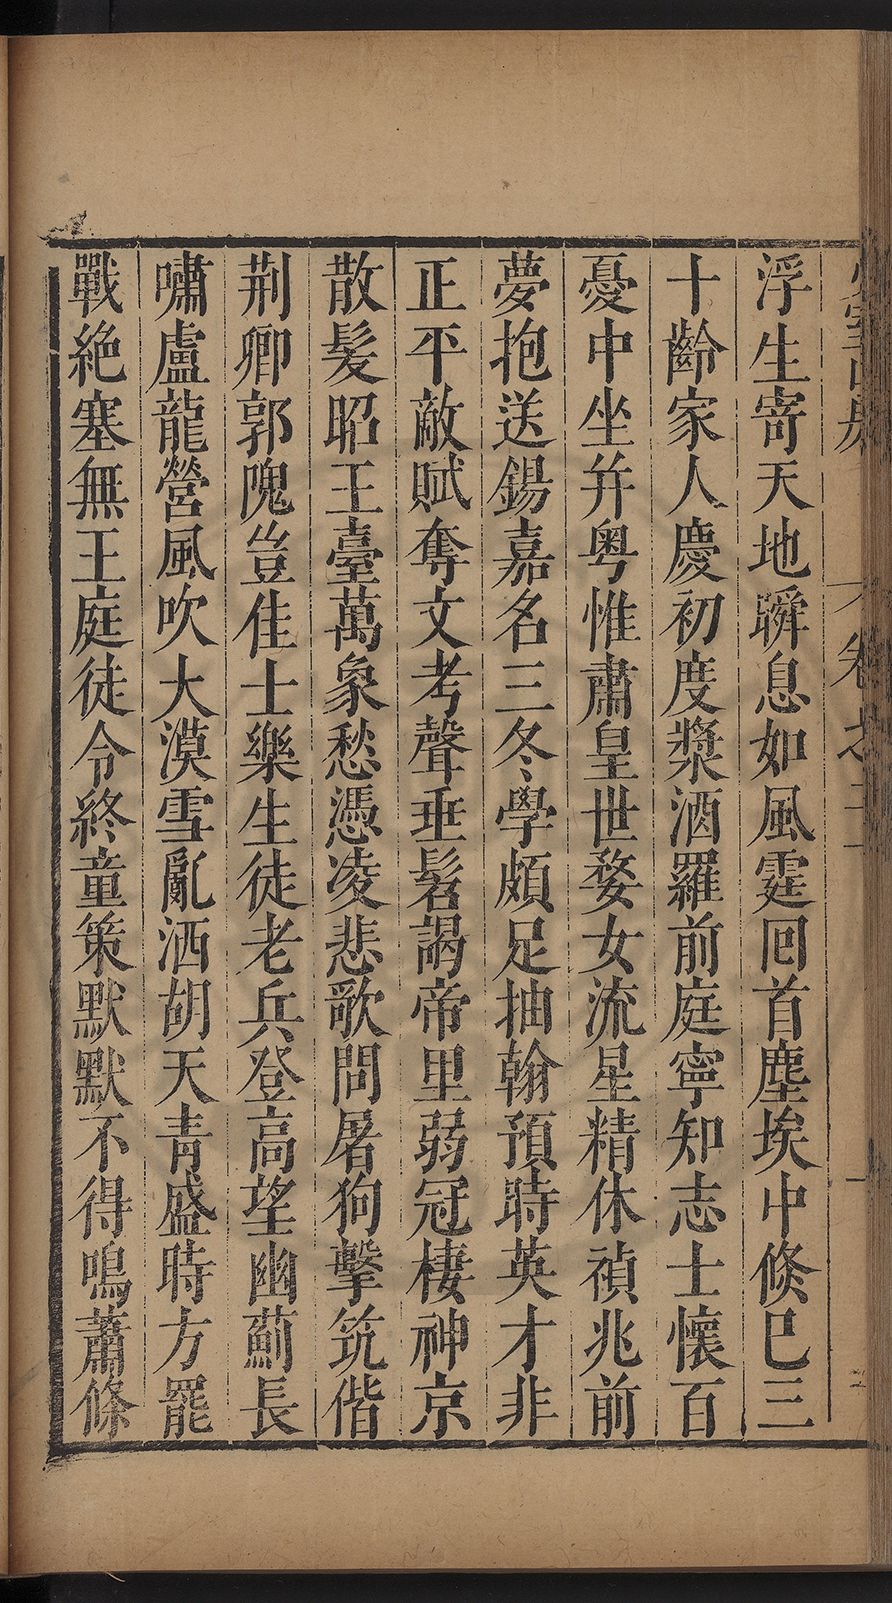 浮生寄天地瞬息如風霆回首塵埃中倐巳三
十齡家人慶初度漿酒羅前庭寧知志士懷百
憂中坐并粤惟肅皇世婺女流星精休禎兆前
夢抱送錫嘉名三冬學頗足抽翰預時英才非
正平敵賦奪文考聲垂髫謁帝里弱冠棲神京
散髪昭王臺萬象愁憑凌悲歌問屠狗擊筑偕
荆卿郭隗豈佳士樂生徒老兵登高望幽薊長
嘯盧龍營風吹大漠雪亂洒胡天青盛時方罷
戰絶塞無王庭徒令終童策默默不得鳴蕭條